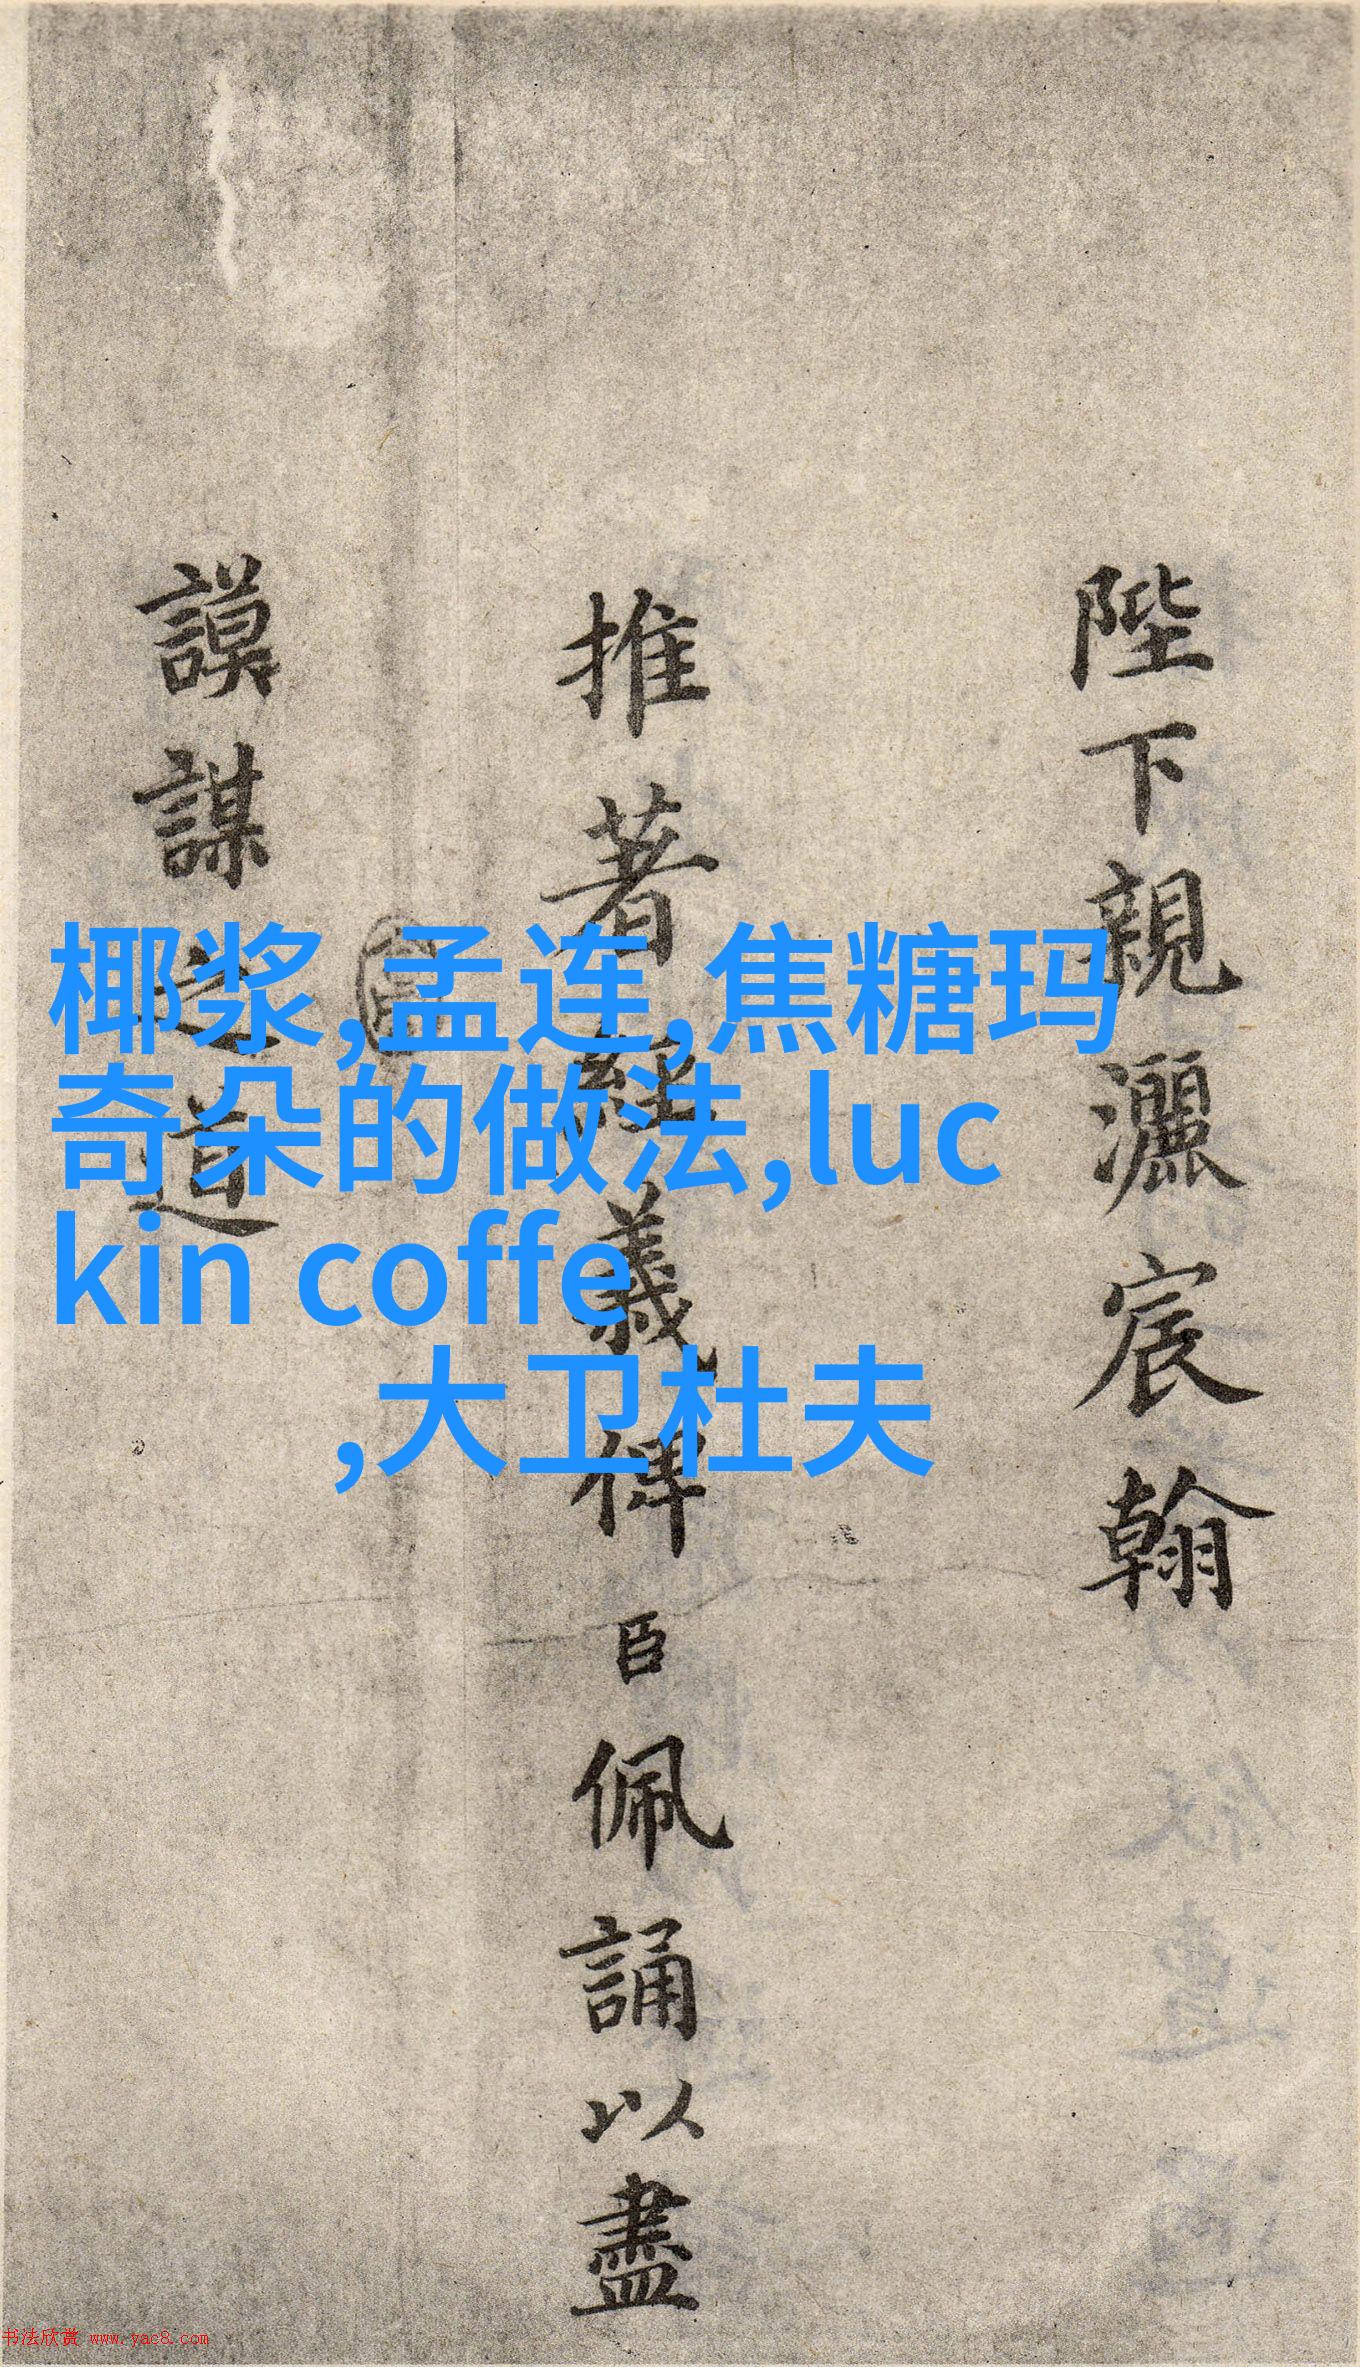 陛下親灑宸翰
推著經義俾臣佩誦以盡
謨謀之道
椰浆,孟连,焦糖玛
奇朵的做法,luc
kin coffe
,大卫杜夫
书法欣赏 www.yac8.com